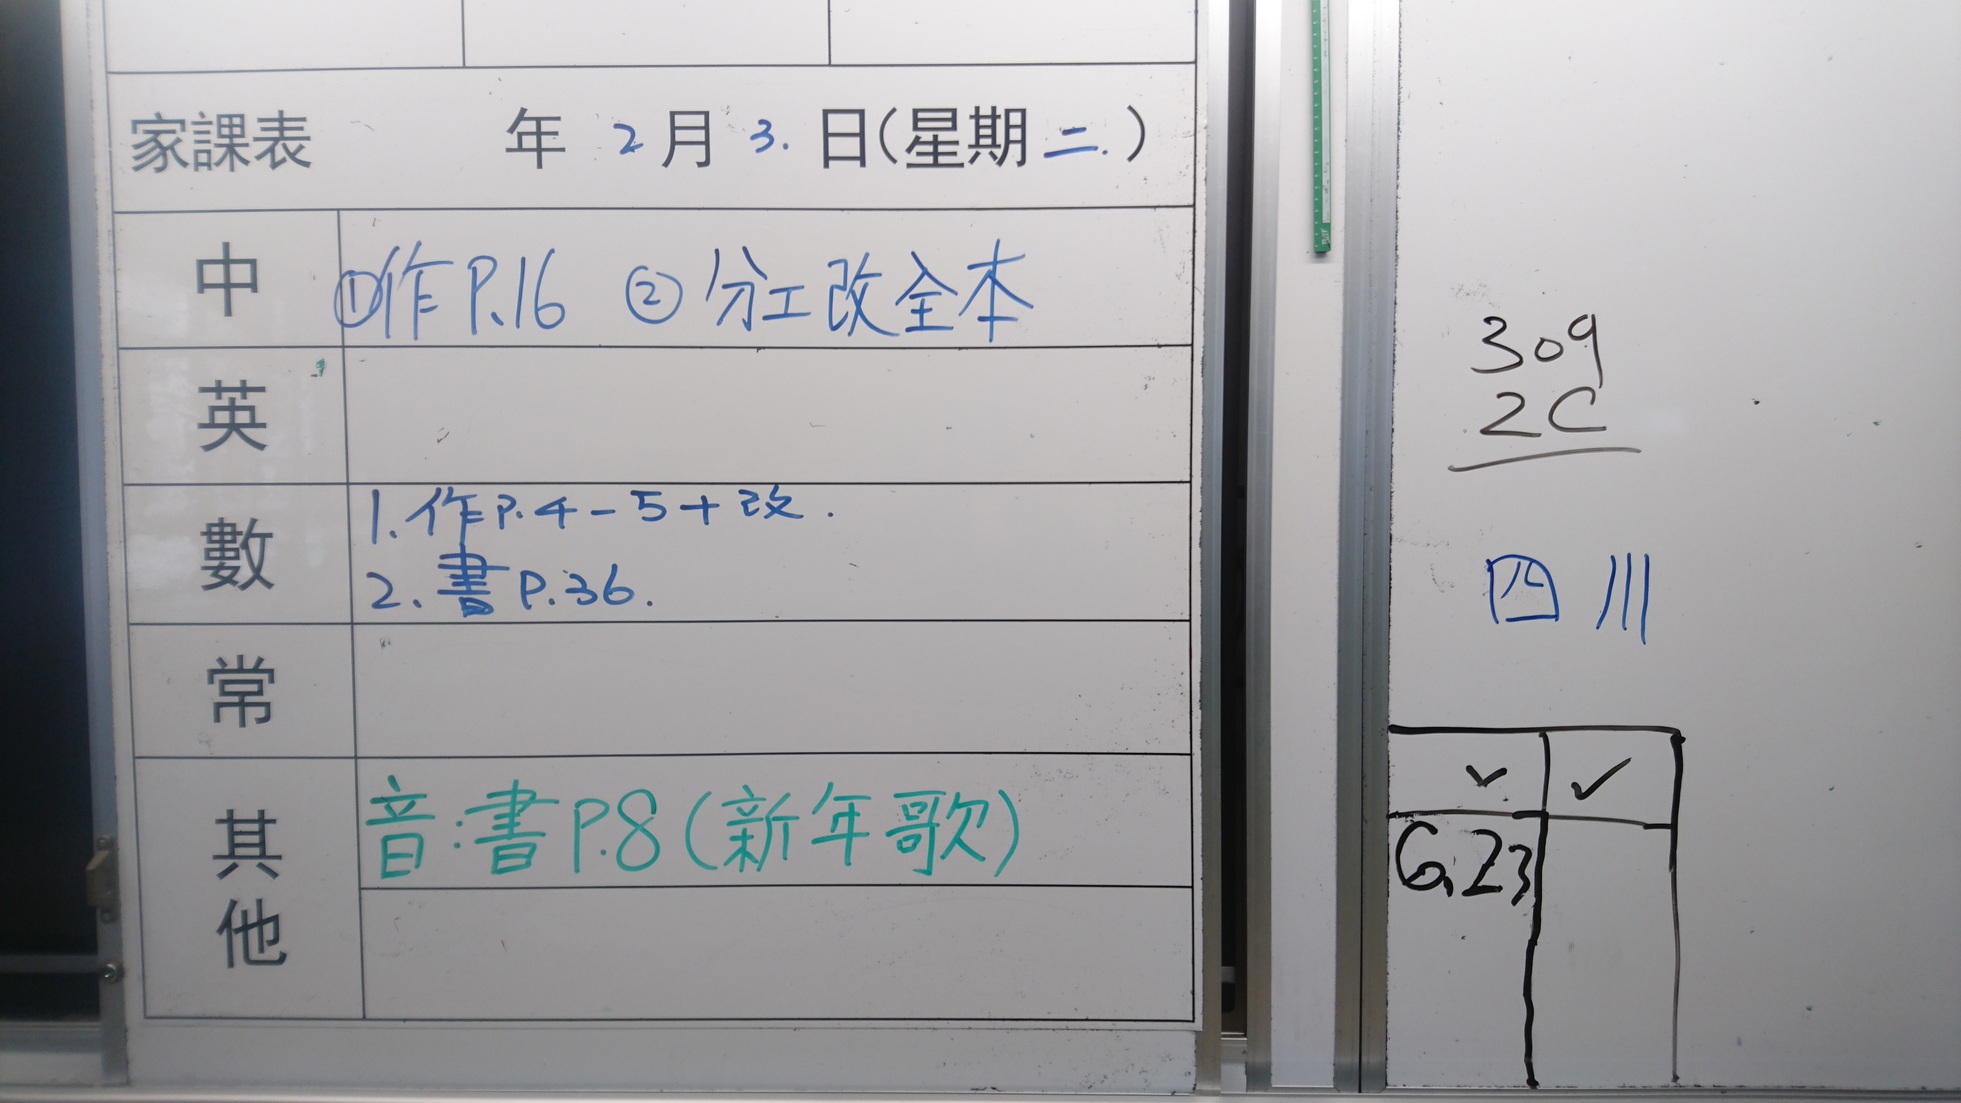 家課表 年 2 月 3. 日(星期 二. )
中 ①作P.16 ②分工改全本
英
數 1.作P.4-5+改.
2.書P.36.
常
其他 音:書P.8(新年歌)
309
2C
四川
✓ ✓
6,23